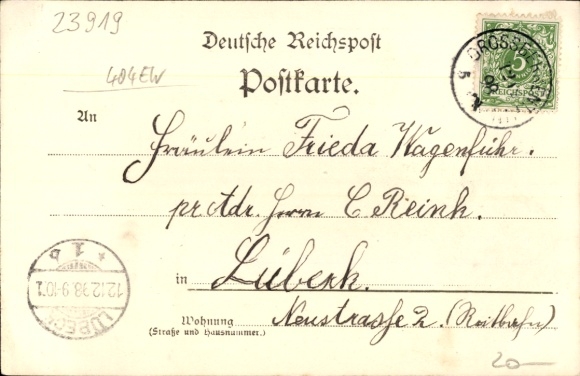 23919
404EW
Deutsche Reichspost
Postkarte.
An
Fräulein Frieda Wagenführ.
pr Adr. Herrn C. Reink.
in Lübeck.
Wohnung Neustrasse 2. (Reitbahn)
(Straße und Hausnummer.)
5
REICHSPOST
LÜBECK
12.12.98.9-10V.
* 1 b
20-